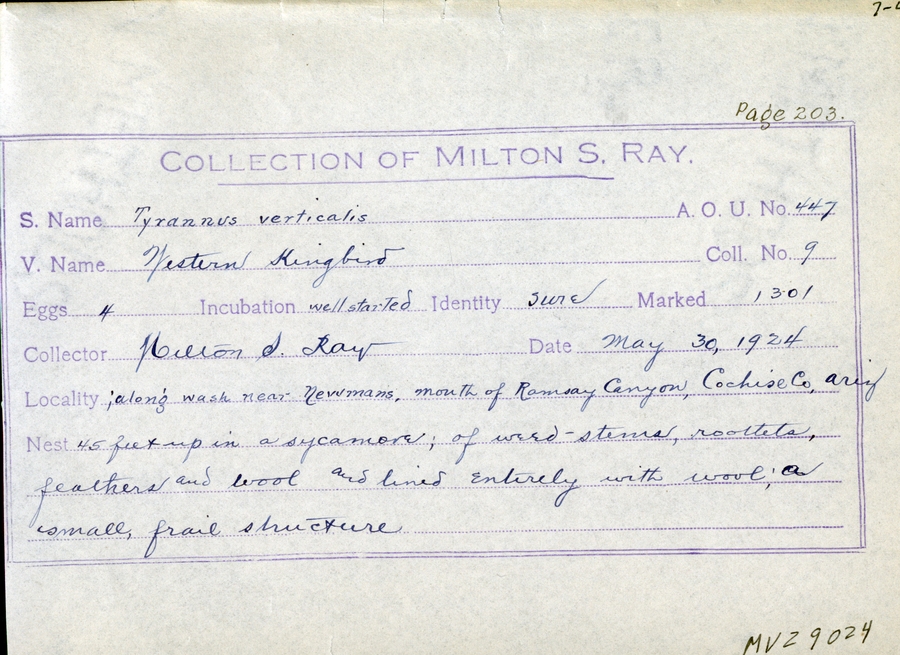 Page 203.
COLLECTION OF MILTON S. RAY.
S. Name Tyrannus verticalis A. O. U. No. 447
V. Name Western Kingbird Coll. No. 9
Eggs 4 Incubation well started Identity sure Marked 1301
Collector Milton S. Ray Date May 30, 1924
Locality along wash near Newmans, mouth of Ramsay Canyon, Cochise Co, ariz
Nest 45 feet up in a sycamore; of weed-stems, rootlets,
feathers and wool and lined entirely with wool; a
small, frail structure
MVZ 9024